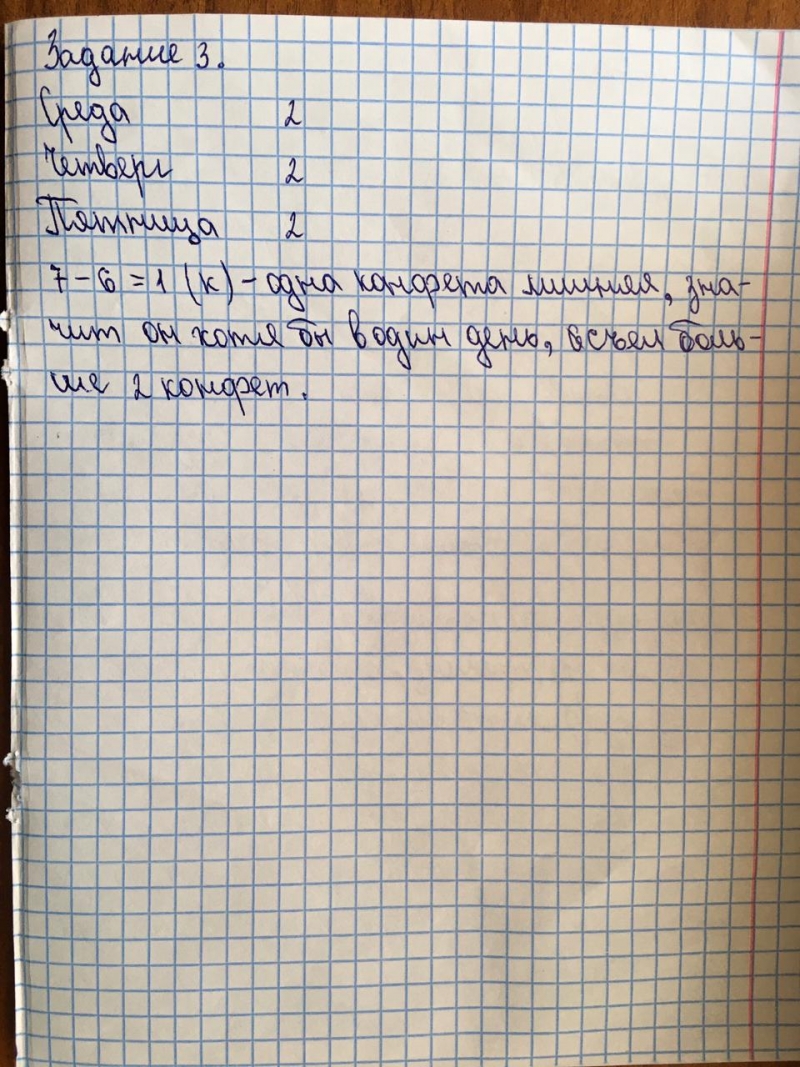 Задание 3.
Среда 2
Четверг 2
Пятница 2
7-6=1 (к) - одна конфета лишняя, зна-
чит он хотя бы в один день, съел боль-
ше 2 конфет.